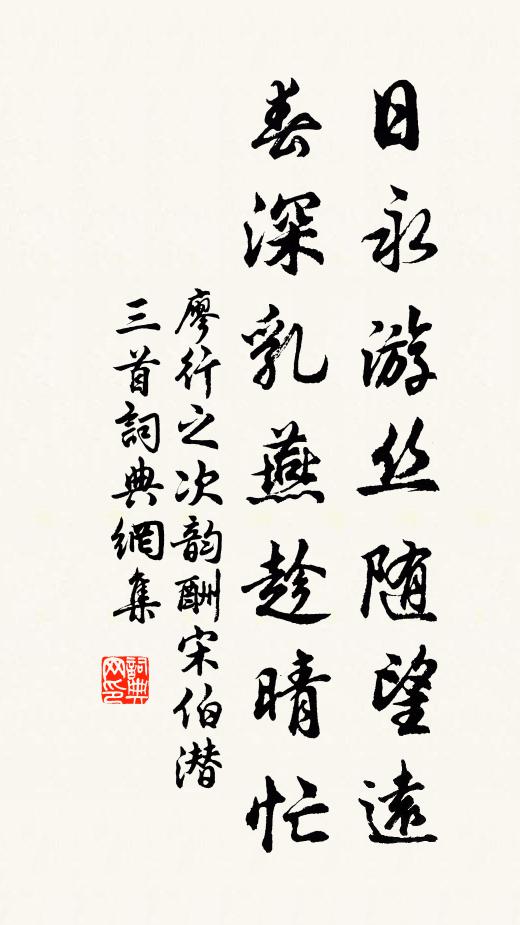 日永游丝随望远
春深乳燕趁晴忙
廖行之次韵酬宋伯潜
三首詞典網集
詞典網印